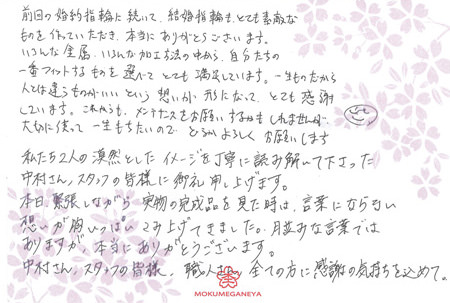 前回の婚約指輪に続いて、結婚指輪も、とても素敵な
ものを作っていただき、本当にありがとうございます。
いろんな金属、いろんな加工方法の中から、自分たちの
一番フィットするものを選べて とても満足しています。一生ものだから
人とは違うものがいい という 想いが 形になって、とても 感謝
しています。これからも、メンテナンスをお願いするかもしれませんが、
大切に使って一生もちたいので どうか よろしく お願いします
私たち2人の漠然とした イメージを丁寧に読み解いて下さった
中村さん、スタッフの皆様に御礼申し上げます。
本日、緊張しながら 実物の完成品を見た時は、言葉にならない
想いが胸いっぱい こみ上げてきました。月並みな言葉では
ありますが、本当にありがとうございます。
中村さん、スタッフの皆様、職人さん、全ての方に感謝の気持ちを込めて。
MOKUMEGANEYA